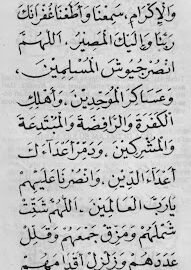 وَالْإِكْرَامِ، سَمِعْنَا وَأَطَعْنَا غُفْرَانَكَ
رَبَّنَا وَإِلَيْكَ الْمَصِيرُ. اَللّٰهُمَّ
انْصُرْ جُيُوشَ الْمُسْلِمِينَ،
وَعَسَاكِرَ الْمُوَحِّدِينَ، وَأَهْلِكِ
الْكَفَرَةَ وَالرَّافِضَةَ وَالْمُبْتَدِعَةَ
وَالْمُشْرِكِينَ. وَدَمِّرْ أَعْدَاءَكَ
أَعْدَاءَ الدِّيْنِ، وَانْصُرْنَا عَلَيْهِمْ
يَارَبَّ الْعَالَمِينَ. اَللّٰهُمَّ شَتِّتْ
شَمْلَهُمْ وَمَزِّقْ جَمْعَهُمْ وَقَلِّلْ
عَدَدَهُمْ وَزَلْزِلْ أَقْدَامَهُمْ